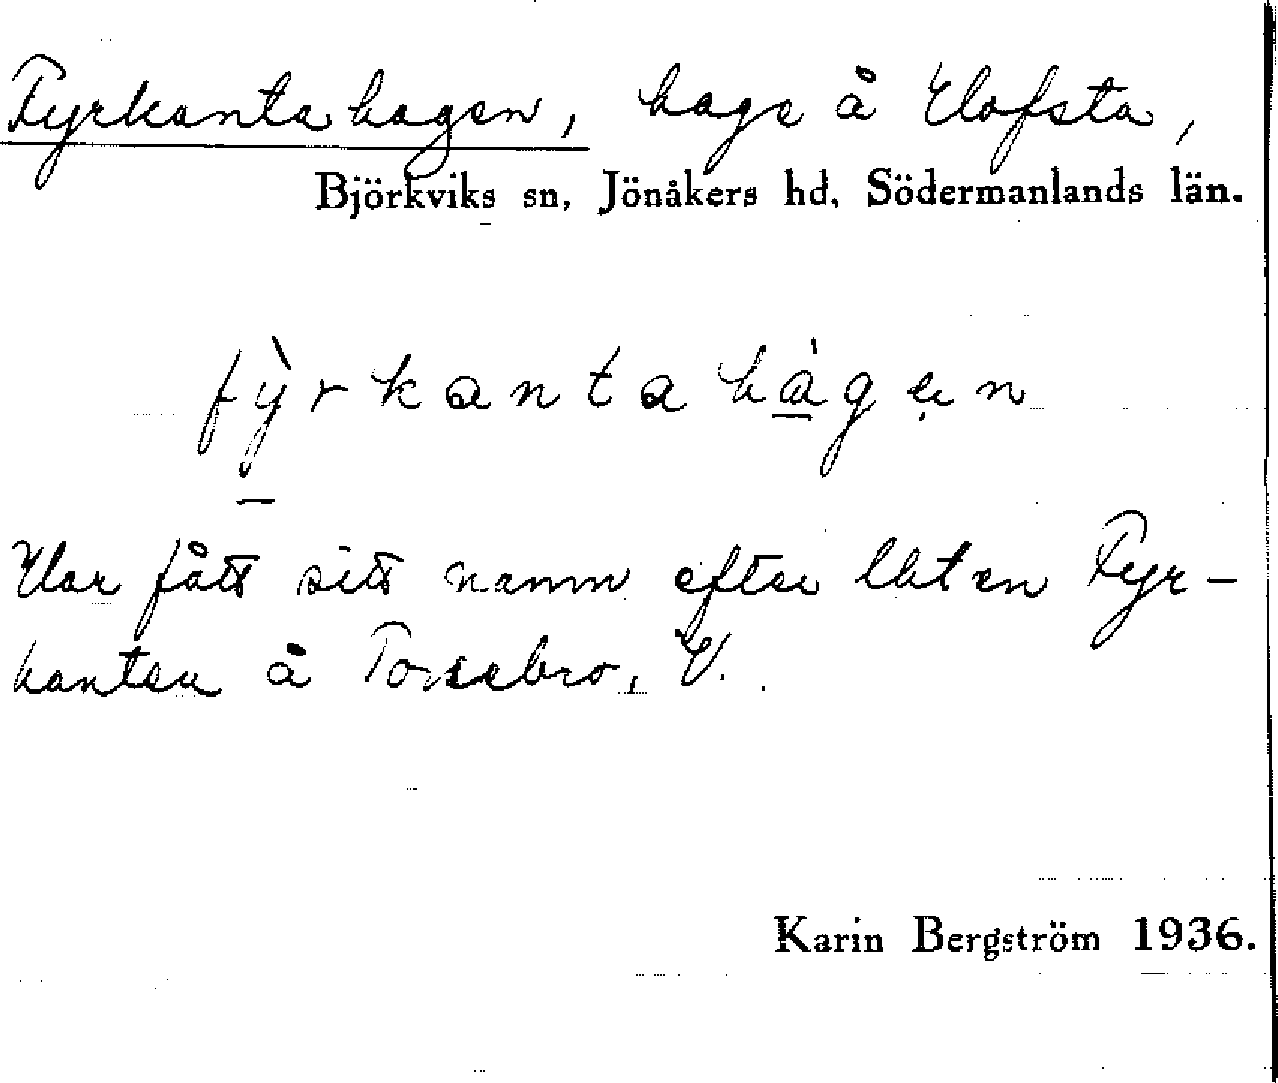 Fyrkantahagen, hage å Hofsta,
Björkviks sn, Jönåkers hd, Södermanlands län.
fỳrkantahàgen
Har fått sitt namn efter lht en Fyr-
kanten å Torsebro, V.
Karin Bergström 1936.